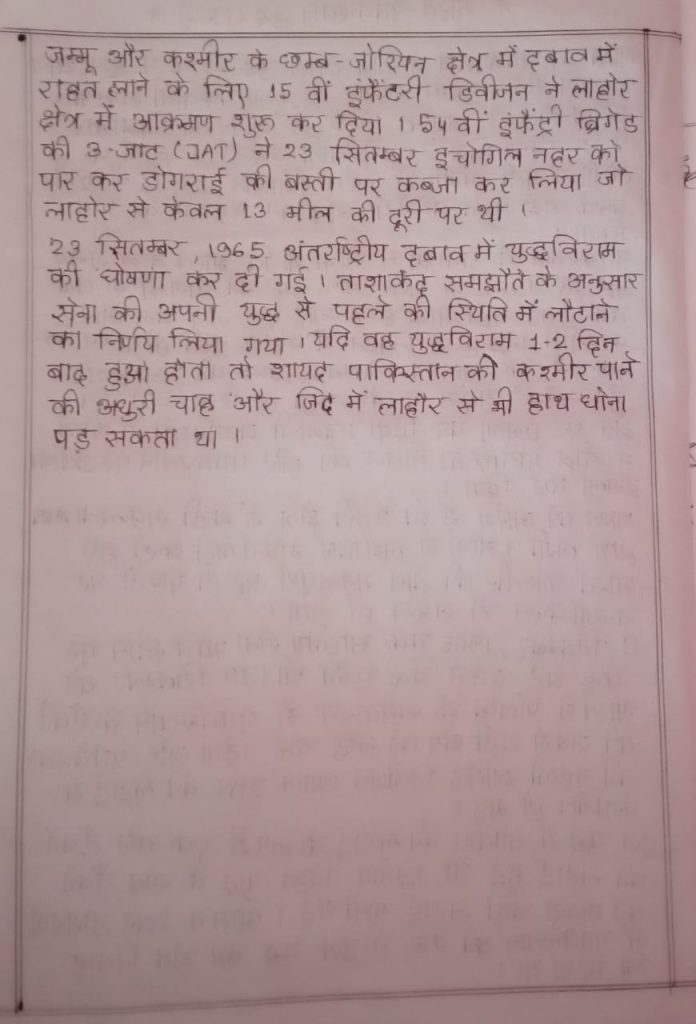 जम्मू और कश्मीर के छम्ब-जोरियन क्षेत्र में दबाव में
राहत लाने के लिए 15 वीं इंफैंटरी डिवीजन ने लाहोर
क्षेत्र में आक्रमण शुरू कर दिया । 54 वीं इंफैंट्री ब्रिगेड
की 3-जाट (JAT) ने 23 सितम्बर इचोगिल नहर को
पार कर डोगराई की बस्ती पर कब्जा कर लिया जो
लाहोर से केवल 13 मील की दूरी पर थी ।
23 सितम्बर, 1965 अंतर्राष्ट्रीय दबाव में युद्धविराम
की घोषणा कर दी गई । ताशाकंद समझौते के अनुसार
सेना की अपनी युद्ध से पहले की स्थिति में लौटाने
का निर्णय लिया गया । यदि वह युद्धविराम 1-2 दिन
बाद हुआ होता तो शायद पाकिस्तान की कश्मीर पाने
की अधुरी चाह और जिद में लाहौर से भी हाथ धोना
पड़ सकता था ।